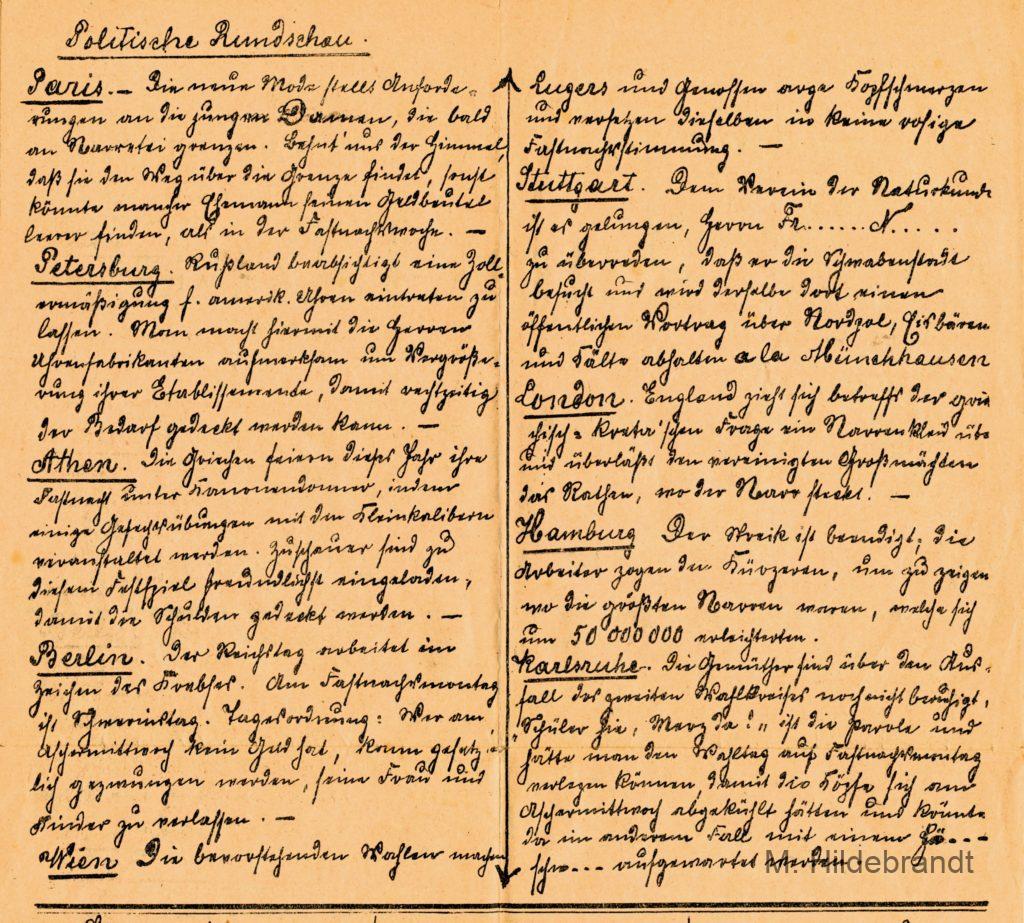 Politische Rundschau.
Paris. – Die neue Mode stellt Anforde-
rungen an die jungen Damen, die bald
an Narretei grenzen. Behüt' uns der Himmel,
daß sie den Weg über die Grenze findet, sonst
könnte mancher Ehemann seinen Geldbeutel
leerer finden, als in der Fastnachtwoche. –
Petersburg. Rußland beabsichtigt eine Zoll-
ermäßigung f. amerik. Uhren eintreten zu
lassen. Man macht hiermit die Herren
Uhrenfabrikanten aufmerksam um Vergröße-
rung ihrer Etablissemente, damit rechtzeitig
der Bedarf gedeckt werden kann. –
Athen. Die Griechen feiern dieses Jahr ihre
Fastnacht unter Kanonendonner, indem
einige Gefechtsübungen mit den Kleinkalibern
veranstaltet werden. Zuschauer sind zu
diesem Festspiel freundlichst eingeladen,
damit die Schulden gedeckt werden. –
Berlin. Der Reichstag arbeitet im
Zeichen des Krebses. Am Fastnachtmontag
ist Schwerinstag. Tagesordnung: Wer am
Aschermittwoch kein Geld hat, kann gesetz-
lich gezwungen werden, seine Frau und
Kinder zu verlassen. –
Wien Die bevorstehenden Wahlen machen
Luegers und Genossen arge Kopfschmerzen
und versetzen dieselben in keine rosige
Fastnachtstimmung. –
Stuttgart. Dem Verein der Naturkunde
ist es gelungen, Herrn Fr...... N.....
zu überreden, daß er die Schwabenstadt
besucht und wird derselbe dort einen
öffentlichen Vortrag über Nordpol, Eisbären
und Kälte abhalten a la Münchhausen
London. England zieht sich betreffs der grie
chisch-kreta'schen Frage ein Narrenkleid übe
und überläßt den vereinigten Großmächten
das Rathen, wo der Narr steckt. –
Hamburg Der Streik ist beendigt; die
Arbeiter zogen den Kürzeren, um zu zeigen
wo die größten Narren waren, welche sich
um 50 000 000 erleichterten.
Karlsruhe. Die Gemüther sind über den Aus-
fall des zweiten Wahlkreises noch nicht beruhigt,
"Schüler hie, Merz da!" ist die Parole und
hätte man den Wahltag auf Fastnachtmontag
verlegen können, damit die Köpfe sich am
Aschermittwoch abgekühlt hätten und könnte
da im anderen Fall mit einem Hä...
schw... aufgewartet werden.
M. Hildebrandt